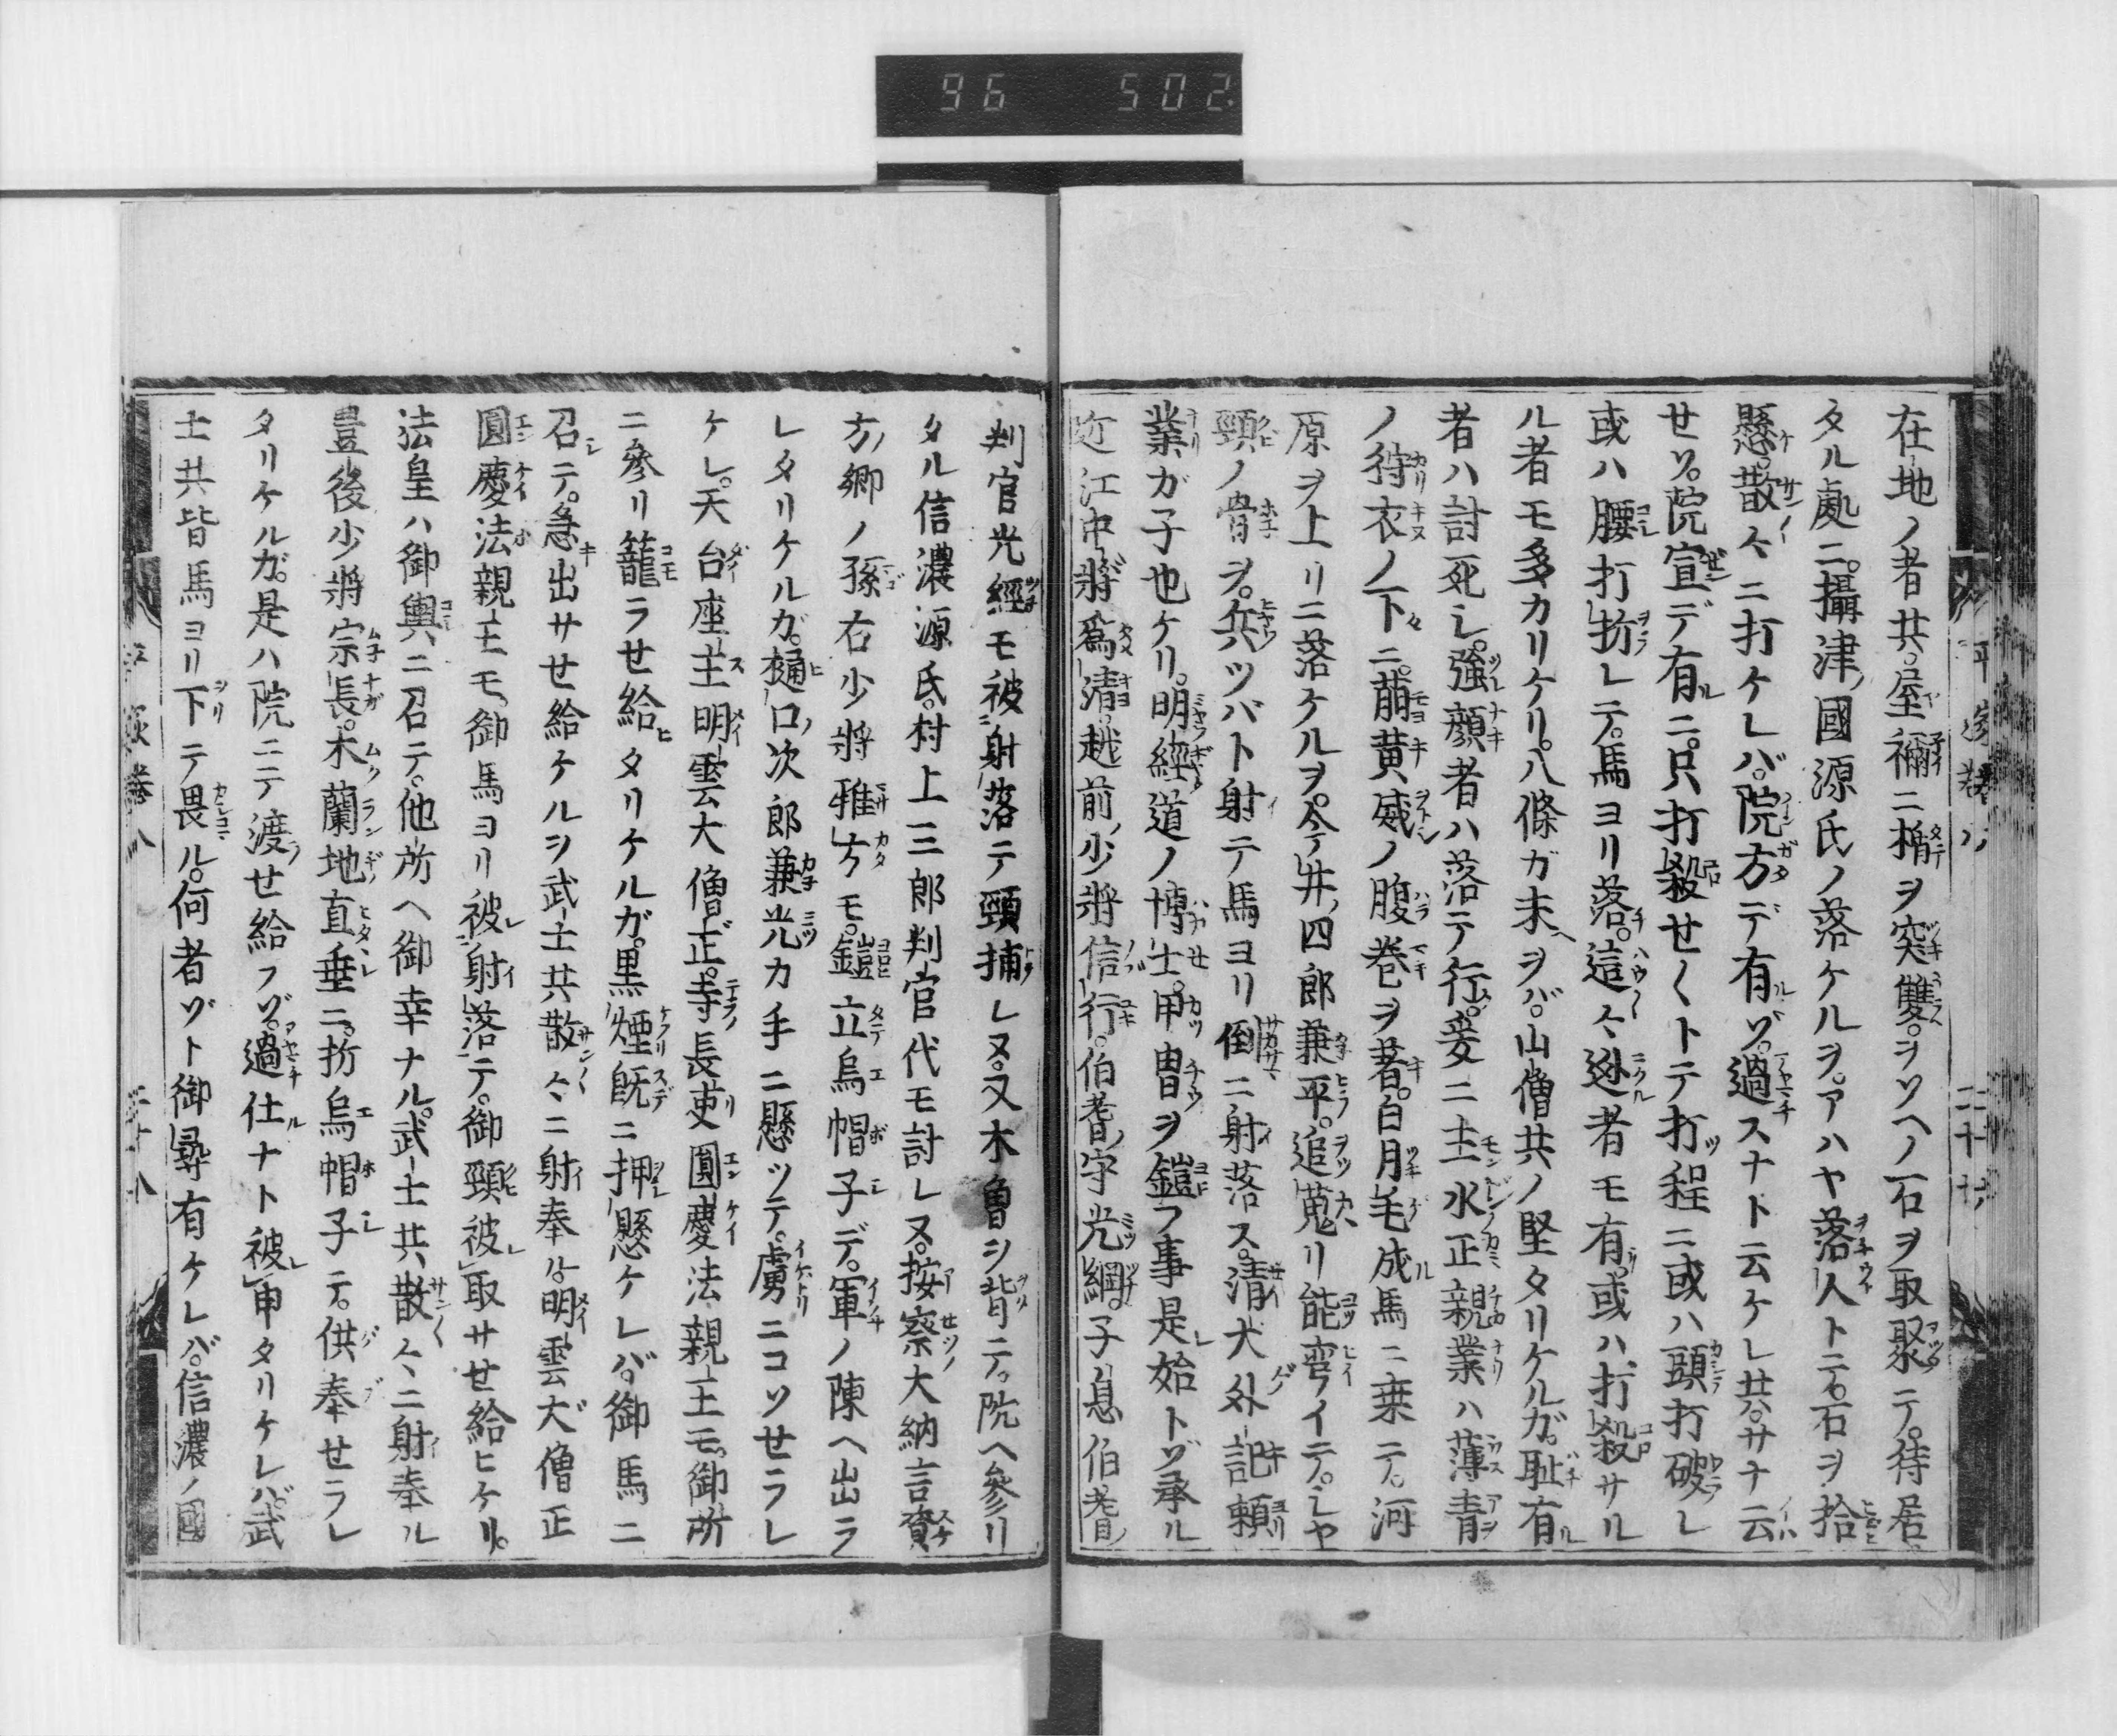 96 502
在地ノ者共。屋禰ニ楯ヲ突雙。ヲソヘノ石ヲ取聚テ。待居
タル處ニ。攝津國源氏ノ落ケルヲ。アハヤ落人トテ。石ヲ拾
懸。散々ニ打ケレバ。院方デ有ゾ。過スナト云ケレ共。サナ云
セソ。院宣デ有ニ。只打殺せ〱トテ打程ニ或ハ頭打破レ
或ハ腰打折レテ。馬ヨリ落。這々逃者モ有。或ハ打殺サル
ル者モ多カリケリ。八條ガ末ヲバ。山僧共ノ堅タリケルガ。恥有
者ハ討死レ。強顔者ハ落テ行。爰ニ主水正親業ハ薄青
ノ狩衣ノ下ニ。萠黄威ノ腹巻ヲ著。白月毛成馬ニ乗テ。河
原ヲ上リニ落ケルヲ。今井四郎兼平。追蒐リ能彎イテ。シヤ
頸ノ骨ヲ。兵ツバト射テ馬ヨリ倒ニ射落ス。清犬外記頼
業ガ子也ケリ。明經道ノ博士。甲冑ヲ鎧フ事是始トゾ承ル
近江中將爲清。越前少將信行。伯耆守光綱。子息伯耆
判官光經モ被射落テ頸捕レヌ。又木曾ヲ背テ。院ヘ參リ
タル信濃源氏。村上三郎判官代モ討レヌ。按察大納言資
方卿ノ孫右少將雅方モ。鎧立烏帽子デ。軍ノ陳ヘ出ラ
レタリケルガ。樋口次郎兼光カ手ニ懸ツテ。虜ニコソせラレ
ケレ。天台座主明雲大僧正。寺長吏圓慶法親王モ。御所
ニ參リ籠ラせ給タリケルガ。黒煙既ニ押懸ケレバ。御馬ニ
召テ。急出サせ給ケルヲ武士共散々ニ射奉ル。明雲大僧正
圓慶法親王モ。御馬ヨリ被射落テ。御頸被取サせ給ヒケリ。
法皇ハ御輿ニ召テ。他所ヘ御幸ナル。武士共散々ニ射奉ル
豊後少將宗長。木蘭地直垂ニ。折烏帽子テ。供奉せラレ
タリケルガ。是ハ院ニテ渡せ給フゾ。過仕ナト被申タリケレバ。武
士共皆馬ヨリ下テ畏ル。何者ゾト御尋有ケレバ。信濃ノ國